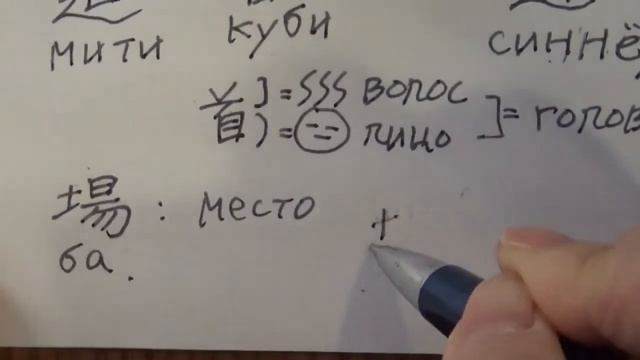 мити куби синнё
首 ] = ʃʃʃ волос
) = лицо ] = голов
場 : место +
ба.